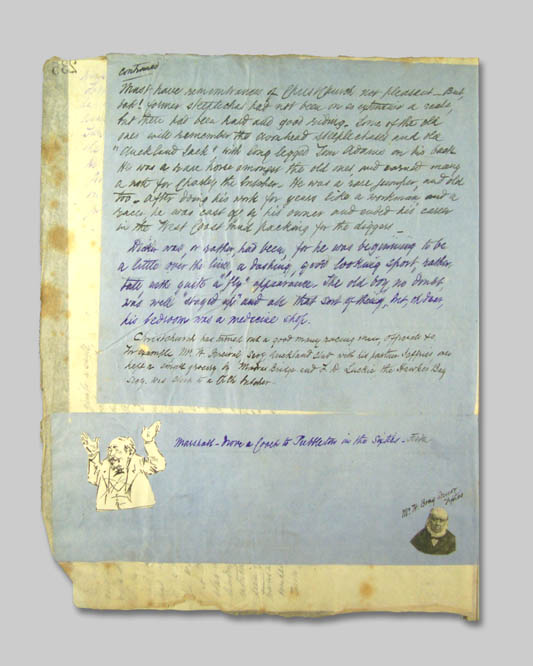 continued
Must have remembrances of Christchurch not pleasant — But,
former steeplechases had not been on so extensive a scale,
but there had been hard and good riding. Some of the old
ones will remember the Avonhead steeplechases and old
"Auckland Jack" with long legged Tom Adams on his back
He was a rare horse amongst the old ones and earned many
a note for Charley the butcher. He was a rare jumper, and old
too — After doing his work for years like a workman and a
racer he was cast off by his owner and ended his career
in the West Coast and packing for the diggers —
Dickie was, or rather, had been, for he was beginning to be
a little over the line, a dashing, good looking sport, rather
tall with quite a "fly" appearance. The old boy no doubt,
was well "togged up" and all that sort of thing, but, oh dear,
his bedroom was a medicine shop.
Christchurch has turned out a good many racing men, officials &c
For example Mr. W. Percival, Secy Auckland Club with his partner Jeffries once
kept a small grocery by Madras Bridge and F. D. Luckie the Hawkes Bay
Secy. was clerk to a butcher.
Marshall — Drove a Coach to Prebbleton in the Sixties —
Mr. W. Bray